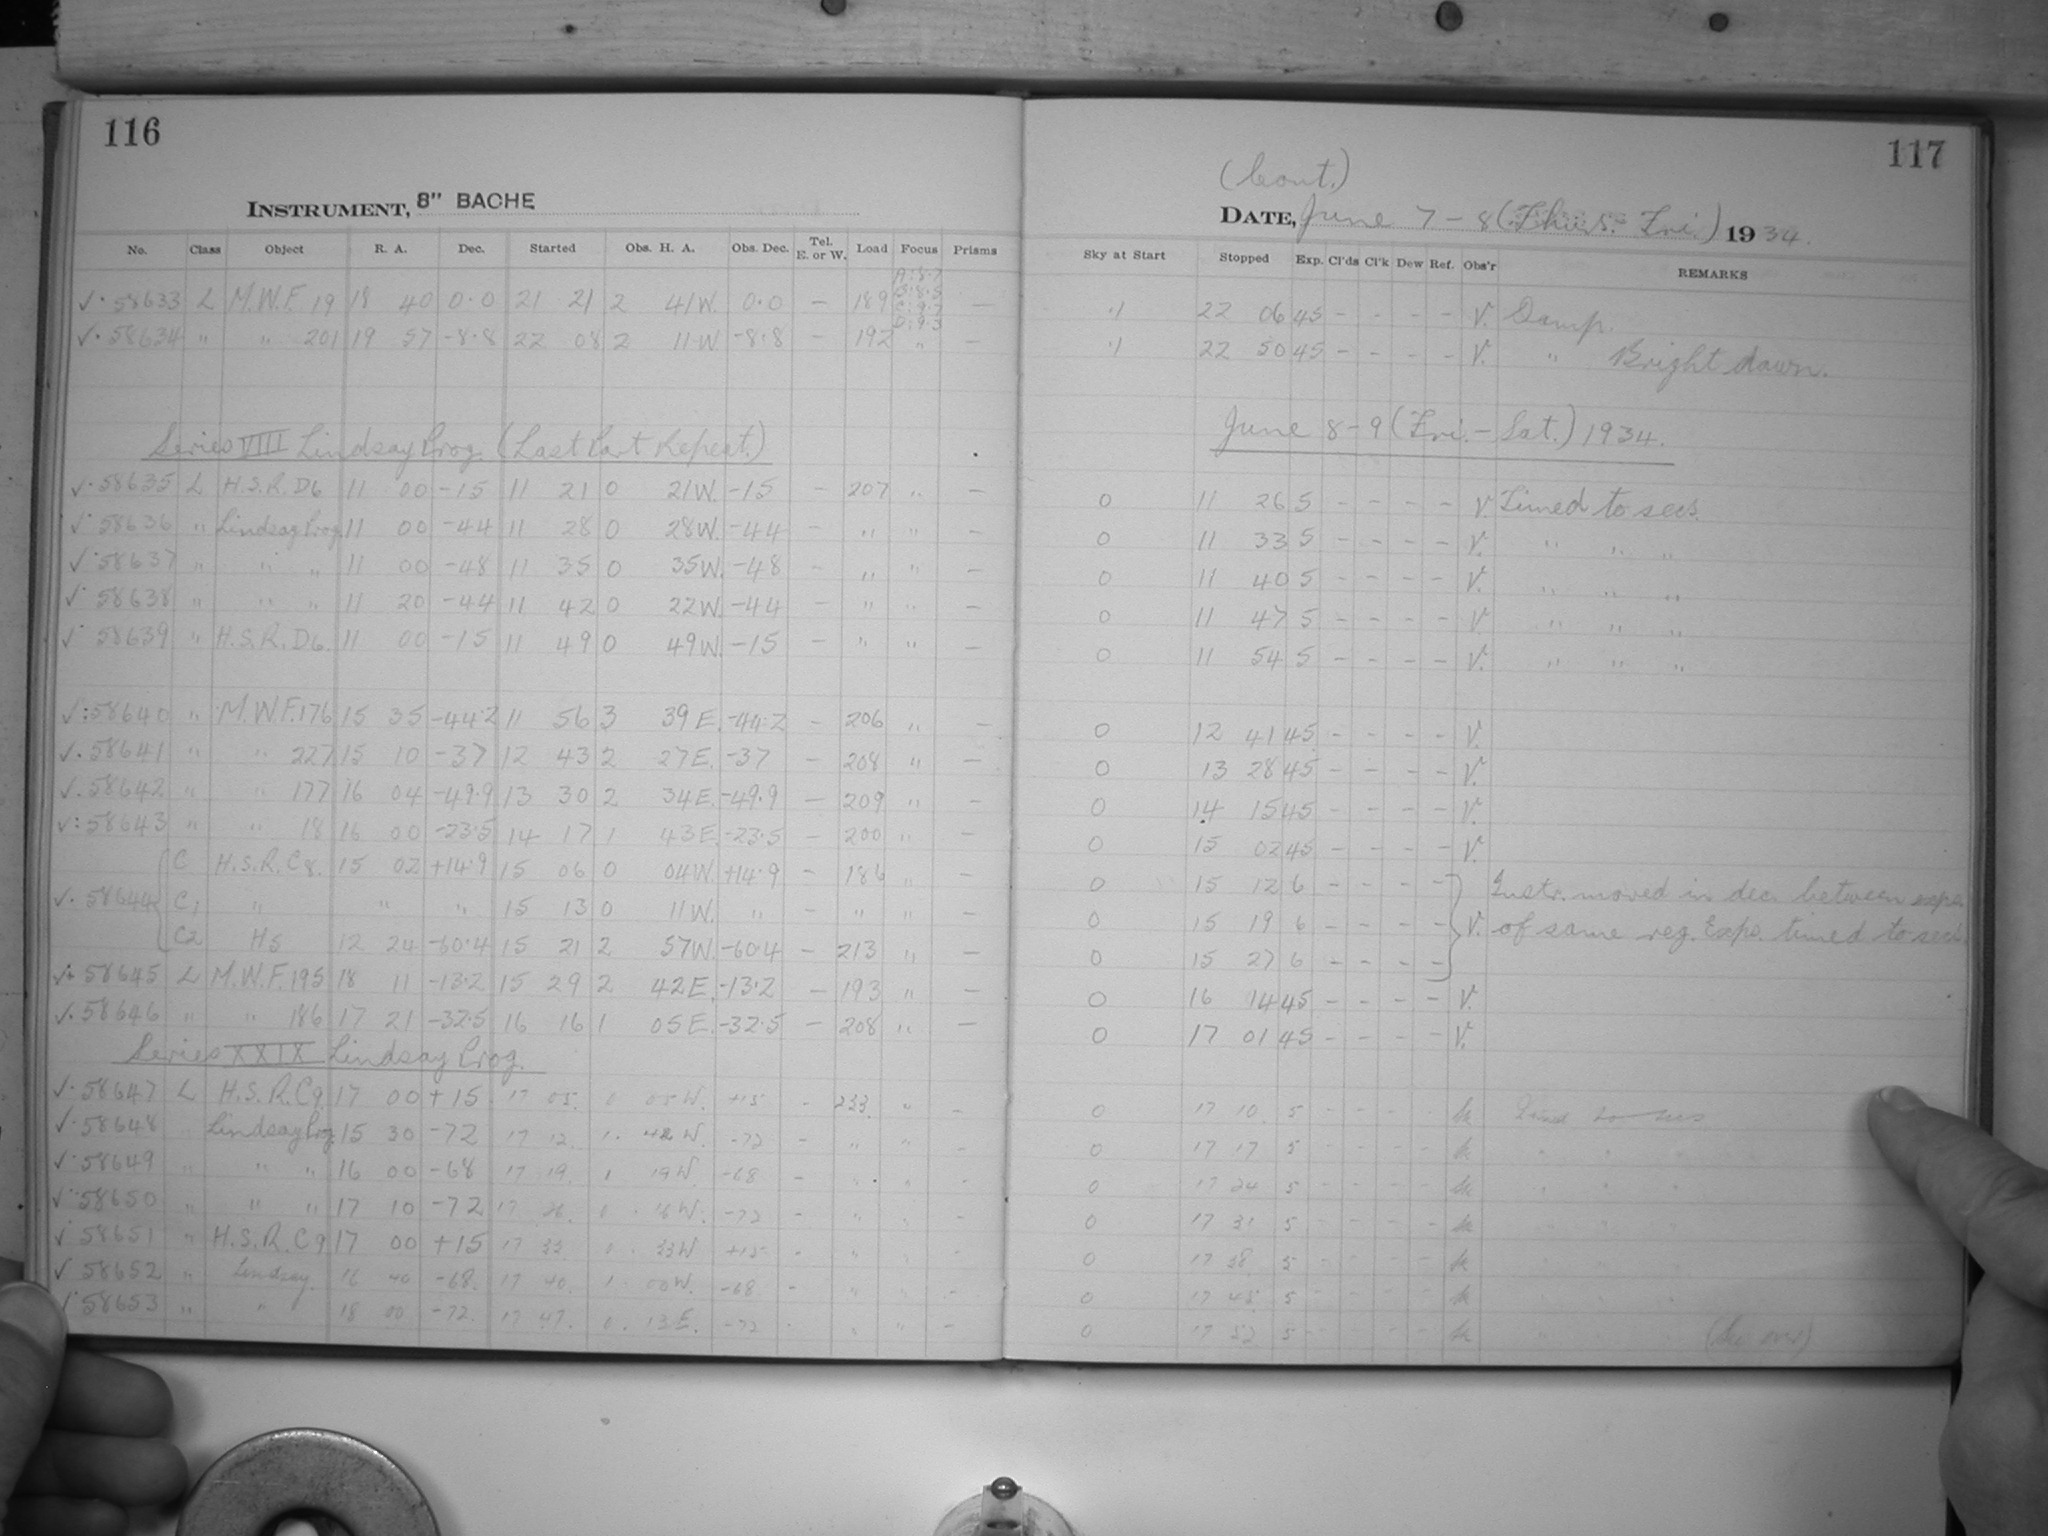 116
INSTRUMENT, 8" BACHE
No. Class Object R. A. Dec. Started Obs. H. A. Obs. Dec. Tel. E. or W. Load Focus Prisms
A:8.7
B:8.5
C:9.7
D:9.3
✓· 58633 L M.W.F. 19 18 40 0·0 21 21 2 41W. 0·0 – 189 –
✓· 58634 " " 201 19 57 -8·8 22 08 2 11W -8·8 – 192 " –
Series VIII Lindsay Prog. (Last Part Repeat.)
✓· 58635 L H.S.R. D6 11 00 -15 11 21 0 21W. -15 – 207 " –
✓ 58636 " Lindsay Prog 11 00 -44 11 28 0 28W. -44 – " " –
✓· 58637 " " " 11 00 -48 11 35 0 35W. -48 – " " –
✓ 58638 " " " 11 20 -44 11 42 0 22W. -44 – " " –
✓ 58639 " H.S.R. D6. 11 00 -15 11 49 0 49W. -15 – " " –
✓: 58640 " M.W.F. 176 15 35 -44·2 11 56 3 39E. -44·2 – 206 " –
✓· 58641 " " 227 15 10 -37 12 43 2 27E. -37 – 208 " –
✓· 58642 " " 177 16 04 -49.9 13 30 2 34E. -49.9 – 209 " –
✓: 58643 " " 18 16 00 -23·5 14 17 1 43E. -23·5 – 200 " –
C H.S.R. C8. 15 02 +14·9 15 06 0 04W. +14·9 – 186 " –
✓· 58644 C1 " " " 15 13 0 11W. " – " " –
C2 H5 12 24 -60·4 15 21 2 57W. -60·4 – 213 " –
✓: 58645 L M.W.F. 195 18 11 -13·2 15 29 2 42E. -13·2 – 193 " –
✓· 58646 " " 186 17 21 -32.5 16 16 1 05E. -32.5 – 208 " –
Series XXIX Lindsay Prog.
✓· 58647 L H.S.R. C9. 17 00 +15 17 05. 0 05W. +15 – 233. " –
✓· 58648 " Lindsay Prog 15 30 -72 17 12. 1. 42W. -72 – " " –
✓ 58649 " " " 16 00 -68 17 19. 1 19W. -68 – " " –
✓· 58650 " " " 17 10 -72 17 26. 0 . 16W. -72 – " " –
✓ 58651 " H.S.R. C9 17 00 +15 17 33 0 . 33W. +15 – " " –
✓ 58652 " Lindsay. 16 40 -68. 17 40. 1 . 00W. -68 – " " –
✓ 58653 " " 18 00 -72. 17 47. 0. 13E. -72 – " " –
117
(Cont.)
DATE, June 7-8 (Thurs. Fri.) 1934.
Sky at Start Stopped Exp. Cl'ds Cl'k Dew Ref. Obs'r REMARKS
·1 22 06 45 – – – – V. Damp.
·1 22 50 45 – – – – V. " Bright dawn.
June 8-9 (Fri.-Sat.) 1934.
0 11 26 5 – – – – V. Timed to secs.
0 11 33 5 – – – – V. " " "
0 11 40 5 – – – – V. " " "
0 11 47 5 – – – – V. " " "
0 11 54 5 – – – – V. " " "
0 12 41 45 – – – – V.
0 13 28 45 – – – – V.
0 14 15 45 – – – – V.
0 15 02 45 – – – – V.
0 15 12 6 – – – – Instr. moved in dec. between exps.
0 15 19 6 – – – – V. of same reg. Exps. timed to secs.
0 15 27 6 – – – –
0 16 14 45 – – – – V.
0 17 01 45 – – – – V.
0 17 10 5 – – – – Timed to secs
0 17 17 5 – – – – " " "
0 17 24 5 – – – – " " "
0 17 31 5 – – – –
0 17 38 5 – – – –
0 17 45 5 – – – –
0 17 52 5 – – – –